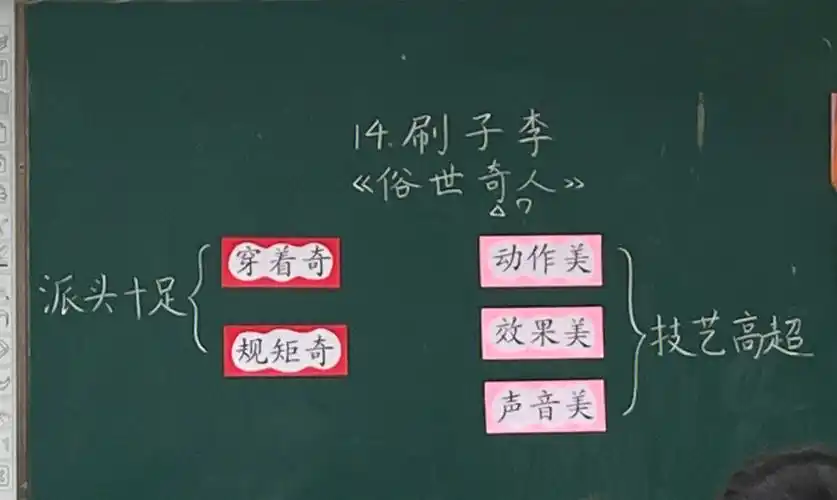 14.刷子李
《俗世奇人》
派头十足
穿着奇
规矩奇
动作美
效果美
声音美
技艺高超